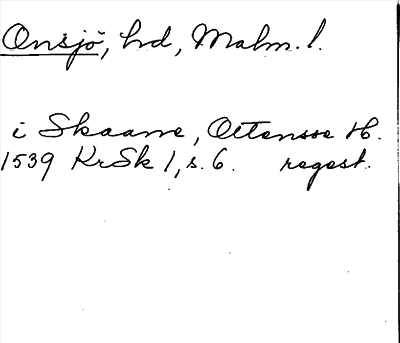 Onsjö, hd, Malm. l.
i Skaane, Ottensse H.
1539 KrSk 1, s. 6. regest.